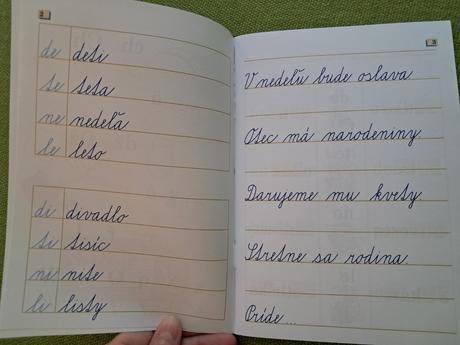 de deti
te teta
ne nedeľa
le leto
di divadlo
ti tisíc
ni nite
li listy
V nedeľu bude oslava
Otec má narodeniny
Darujeme mu kvety
Stretne sa rodina.
Príde...